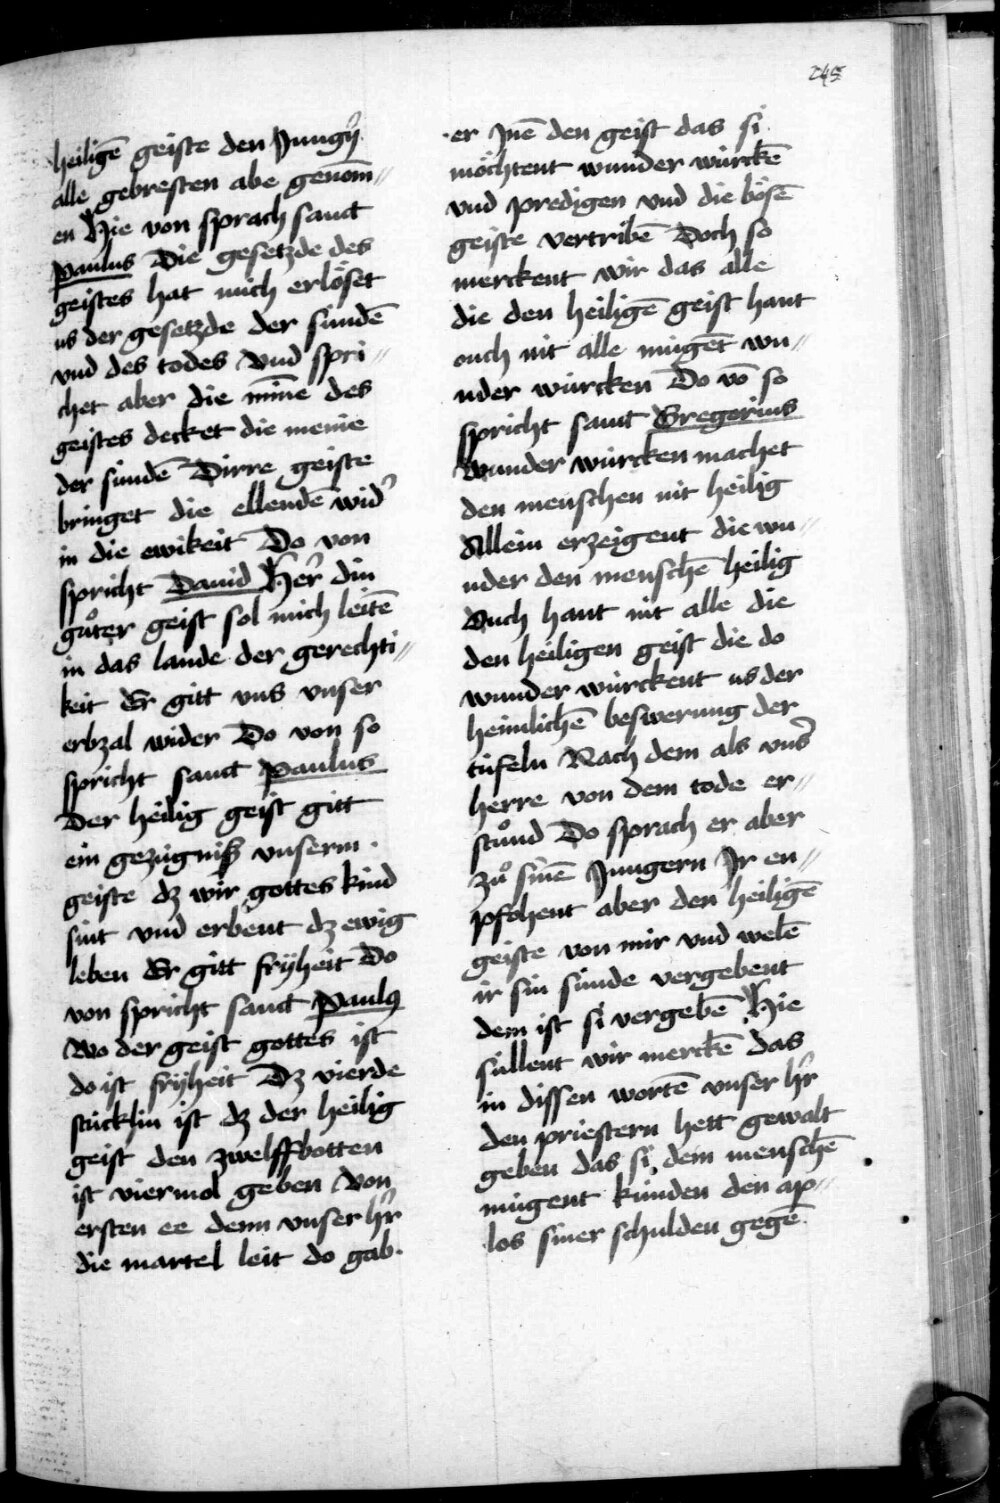 245
heiligē geiste den Jungÿ
alle gebresten abe genom̄//
en Hie von sprach sanct
Paulus Die gesetzde des
geistes hat mich erlöset
us der gesetzde der sundē
vnd des todes Vnd spri//
chet aber die mīne des
geistes decket die menie
der sundē Dirre geiste
bringet die ellendē wid͛
in die ewikeit Do von
spricht Dauid Her͛ din
gůter geist sol mich leitē
in das lande der gerechti//
keit Er gitt vns vnser
erbzal wider Do von so
spricht sanct Paulus
Der heilig geist gitt
ein gezügniß vnserm
geiste dz wir gottes kind
sint vnd erbent dz ewig
leben Er gitt frÿheit Do
von spricht sanct Paulꝯ
Wo der geist gottes ist
do ist frÿheit Dz vierde
stücklin ist dz der heilig
geist den zwelffbotten
ist viermol geben Von
ersten ee denn vnser hr͛
die martel leit do gab
er Jnē den geist das si
möchtent wunder würckē
vnd predigen vnd die bösē
geiste vertribē Doch so
merckent wir das alle
die den heiligē geist hant
ouch nit alle mügēt wu//
nder würcken Do vō so
spricht sant Gregorius
Wunder würcken machet
den menschen nit heilig
Allein erzeigent die wu//
nder den menschē heilig
Ouch hant nit alle die
den heiligen geist die do
wunder würckent us der
heimlichē beswerung der
tüfeln Nach dem als vns͛
herre von dem tode er//
stůnd Do sprach er aber
zů sinē Jungern Jr en//
pfohent aber den heiligē
geiste von mir vnd welē
ir sin sünde vergebent
dem ist si vergebē Hie
süllent wir merckē das
in dissen wortē vnser hr͛
den priestern hett gewalt
geben das si dem menschē
mügent künden den ap//
los siner schulden gegē